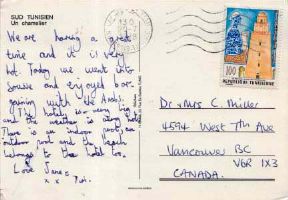 SUD TUNISIEN
Un chamelier
We are having a great
time and it is very
hot. Today we went into
Sousse and enjoyed bar-
gaining with the Arabs.
The hotel is very big
and the weather is very hot
There is an indoor pool, an
outdoor pool and the beach
belongs to the hotel too.
Love Jane
x x
100
REPUBLIQUE TUNISIENNE
Dr & Mrs C. Miller
4594 West 7th Ave
Vancouver BC
V6R 1X3
CANADA.